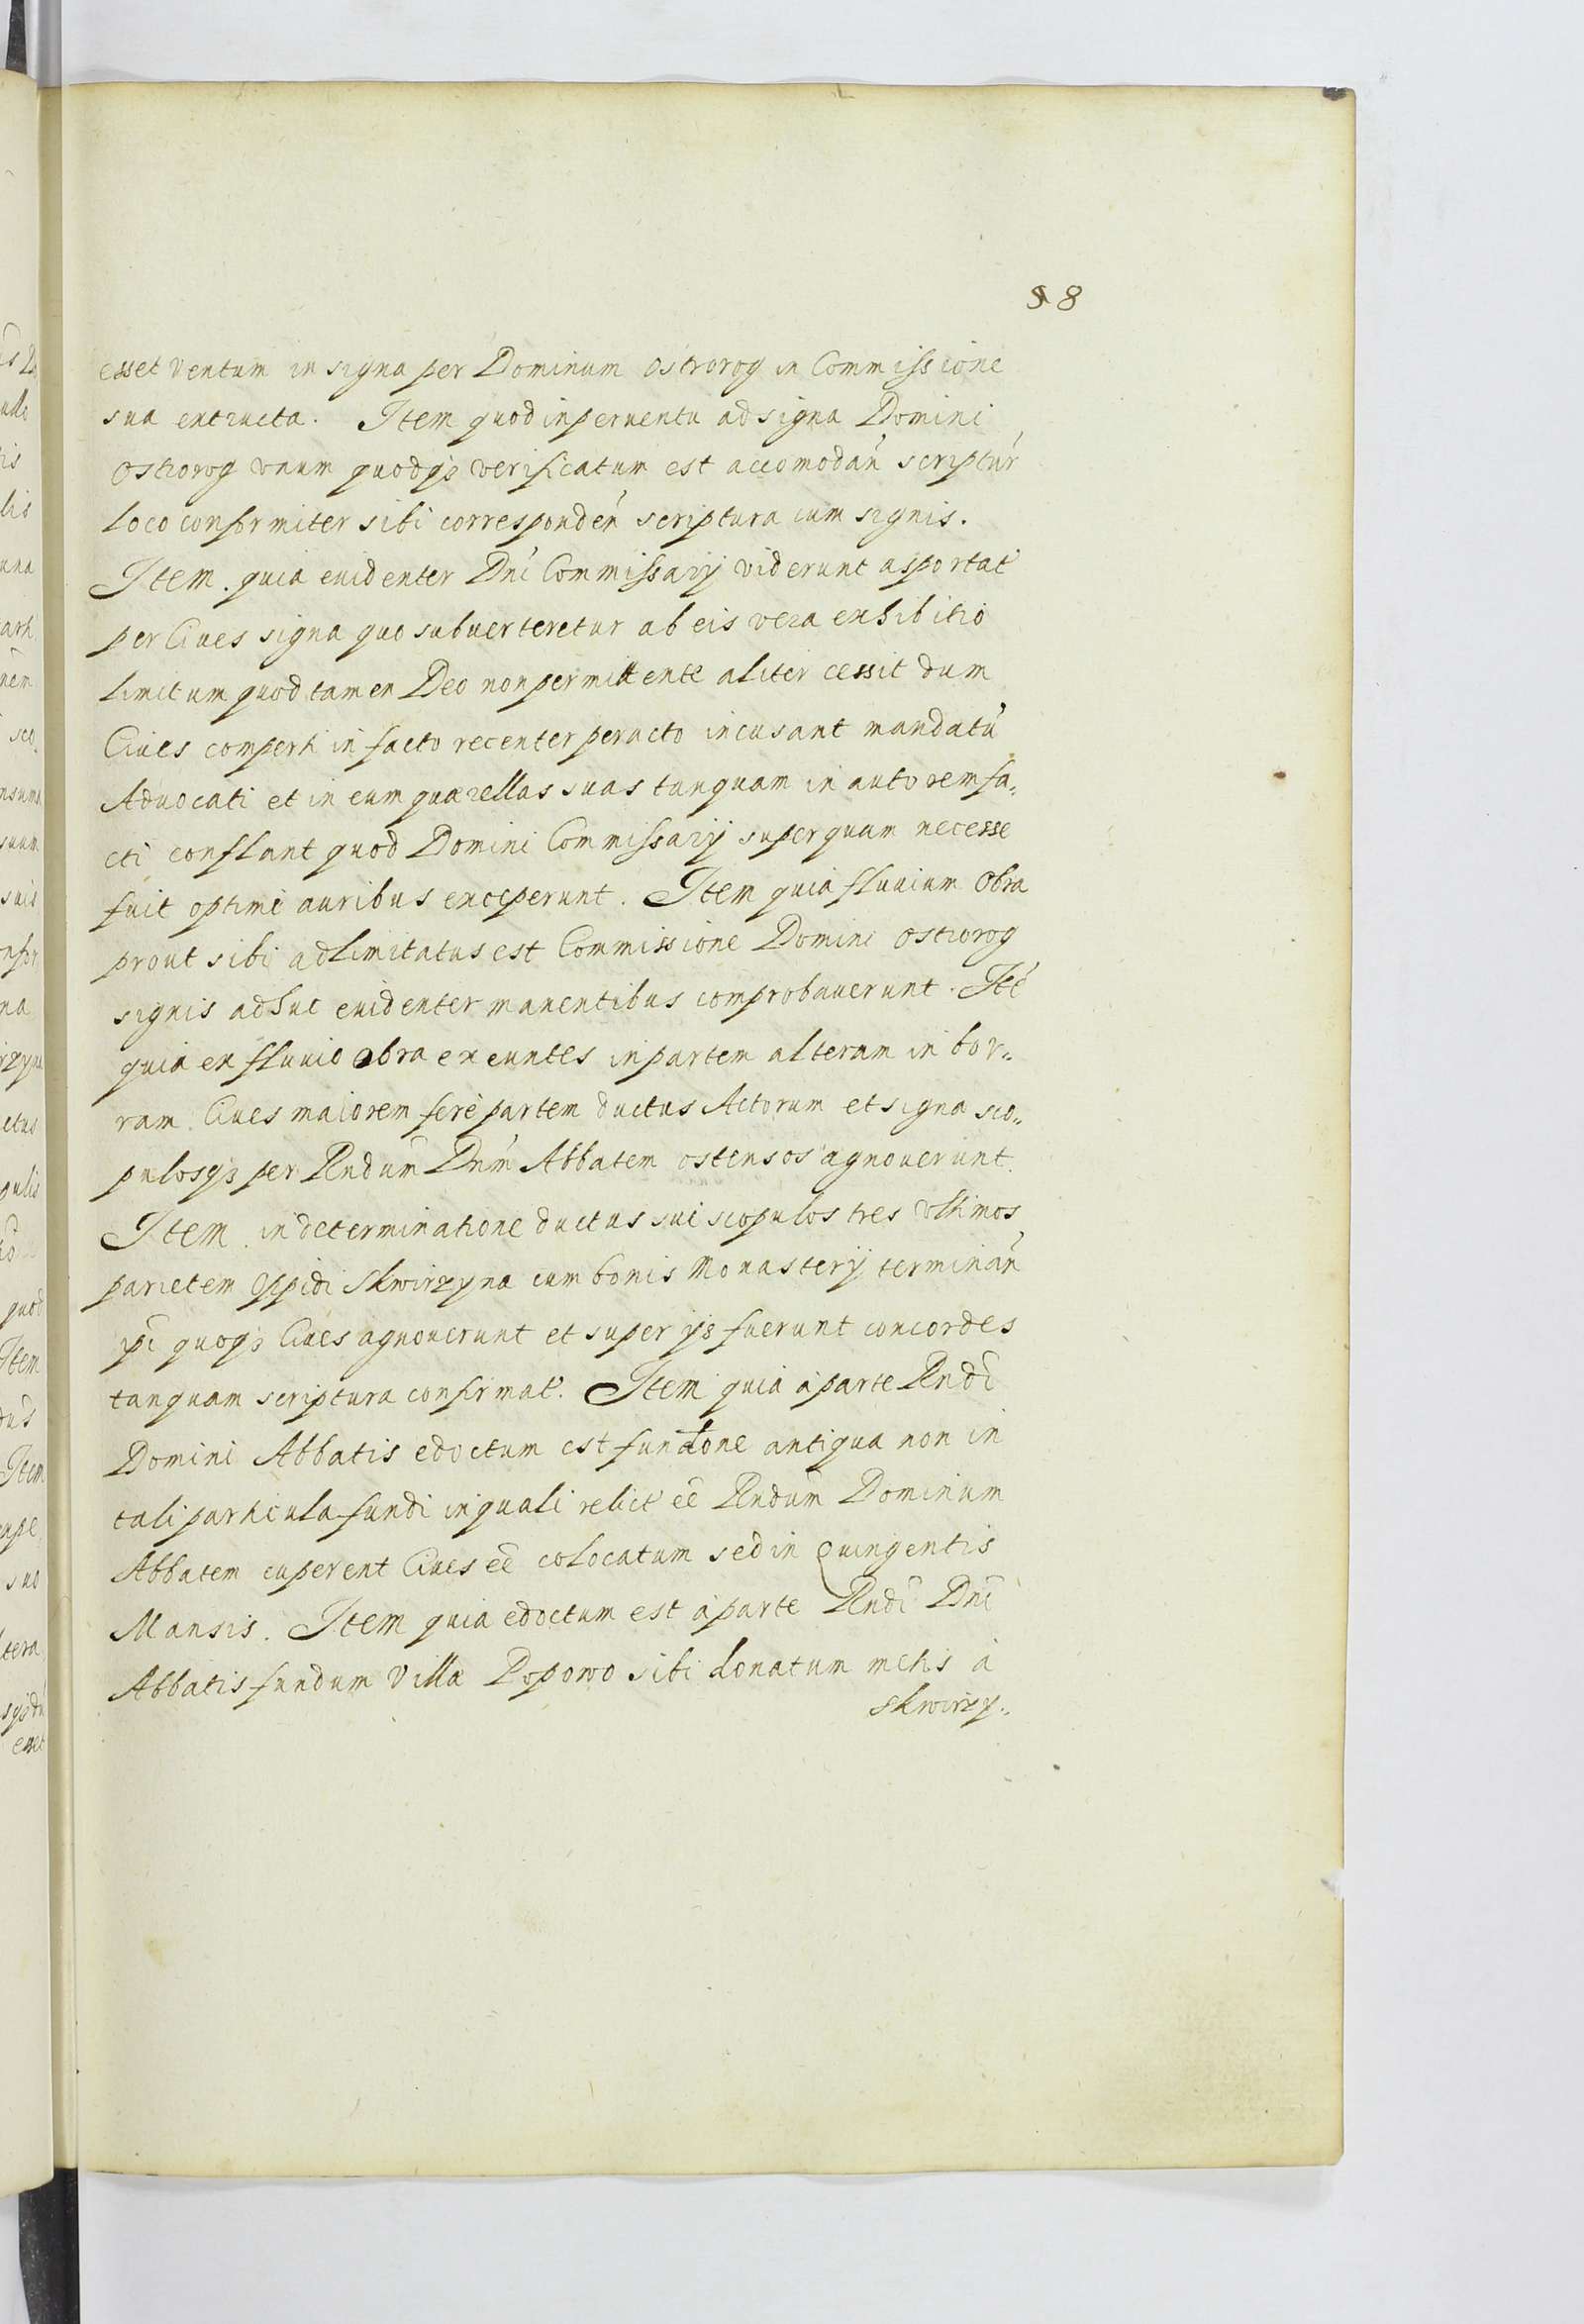 58
esset ventum in signa per Dominum Ostrorog in Commissione
sua extructa. Item quod in peruentu ad signa Domini
Ostrorog vnum quodqȝ verificatum est accomodań scriptuŕ
loco conformiter sibi correspondeń scriptura cum signis.
Item. quia euidenter Dnĩ Commissarij viderunt asportat́
per Ciues signa quo subuerteretur ab eis vera exhibitio
limitum quod tamen Deo non permittente aliter cessit dum
Ciues comperti in facto recenter peracto incusant mandatũ
Aduocati et in eum quærellas suas tanquam in autorem fa„
cti conflant quod Domini Commissarij superquam necesse
fuit optime auribus exceperunt. Item quia fluuium Obra
prout sibi adlimitatus est Commissione Domini Ostrorog
signis adhuc euidenter manentibus comprobauerunt. Itẽ
quia ex fluuio obra exeuntes in partem alteram in bor„
ram. Ciues maiorem ferè partem ductus Actorum et signa sco„
pulosqȝ per Rndum̃ Dnm̃ Abbatem ostensos agnouerunt.
Item. in determinatione ductus sui scopulos tres vltimos
parietem Oppidi Skwirzyna cum bonis Monasterij terminań
ipĩ quoqȝ Ciues agnouerunt et super ijs fuerunt concordes
tanquam scriptura confirmat́. Item quia à parte Rndĩ
Domini Abbatis edoctum est fundtione antiqua non in
tali particula fundi in quali relict́ eẽ Rndum̃ Dominum
Abbatem cuperent Ciues eẽ colocatum sed in Quingentis
Mansis. Item quia edoctum est à parte Rndĩ Dnĩ
Abbatis fundum Villæ Popowo sibi donatum metis à
Skwirzy„